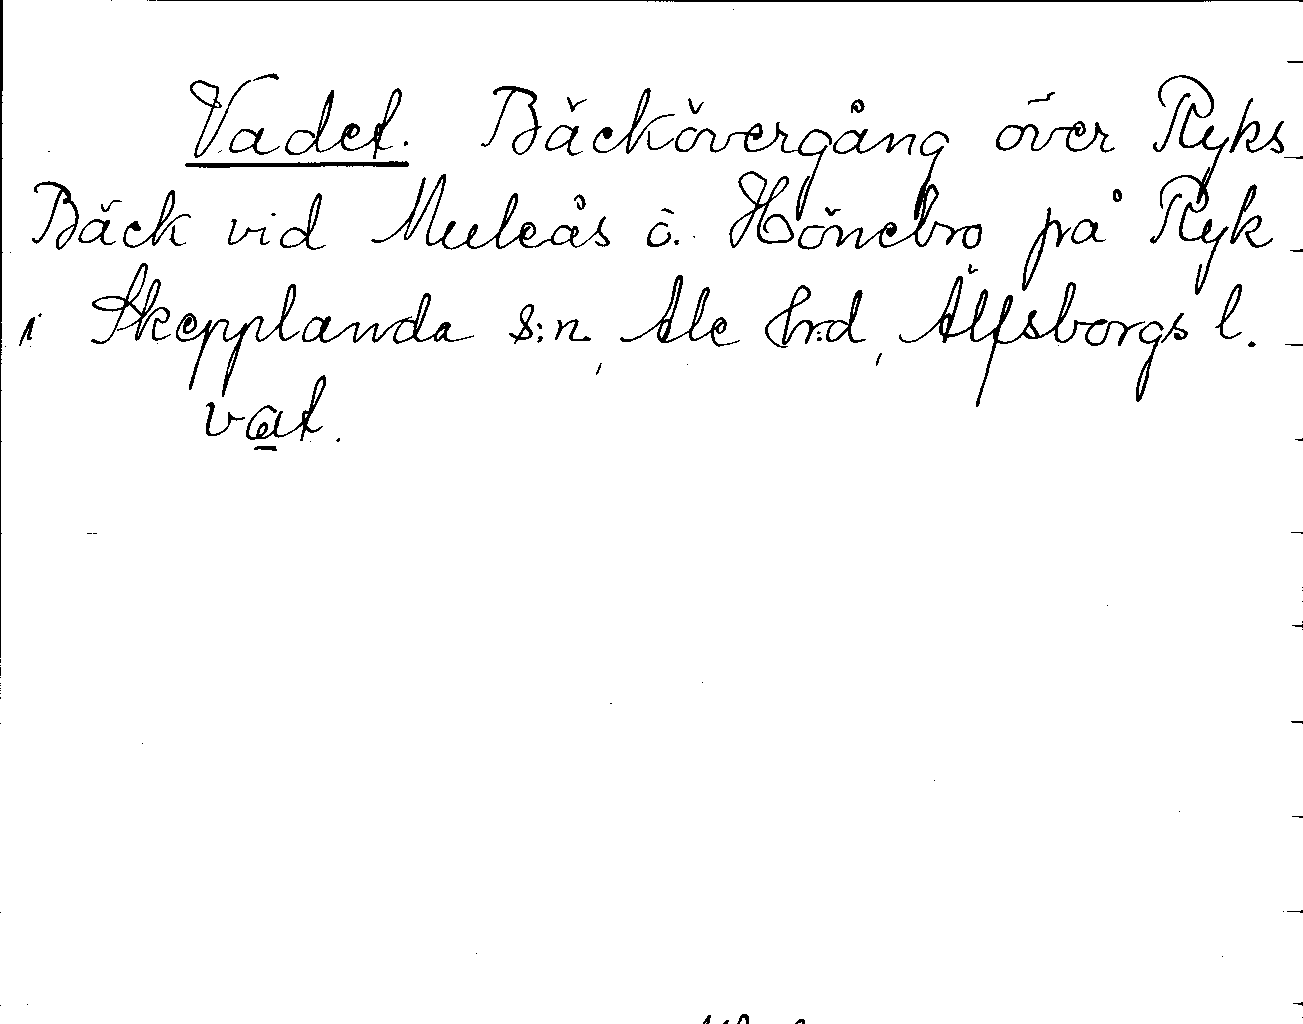 Vadet. Bäckövergång över Ryks
Bäck vid Muleås ö. Hönebro på Ryk
i Skepplanda s:n, Ale hrd, Älfsborgs l.
vat.